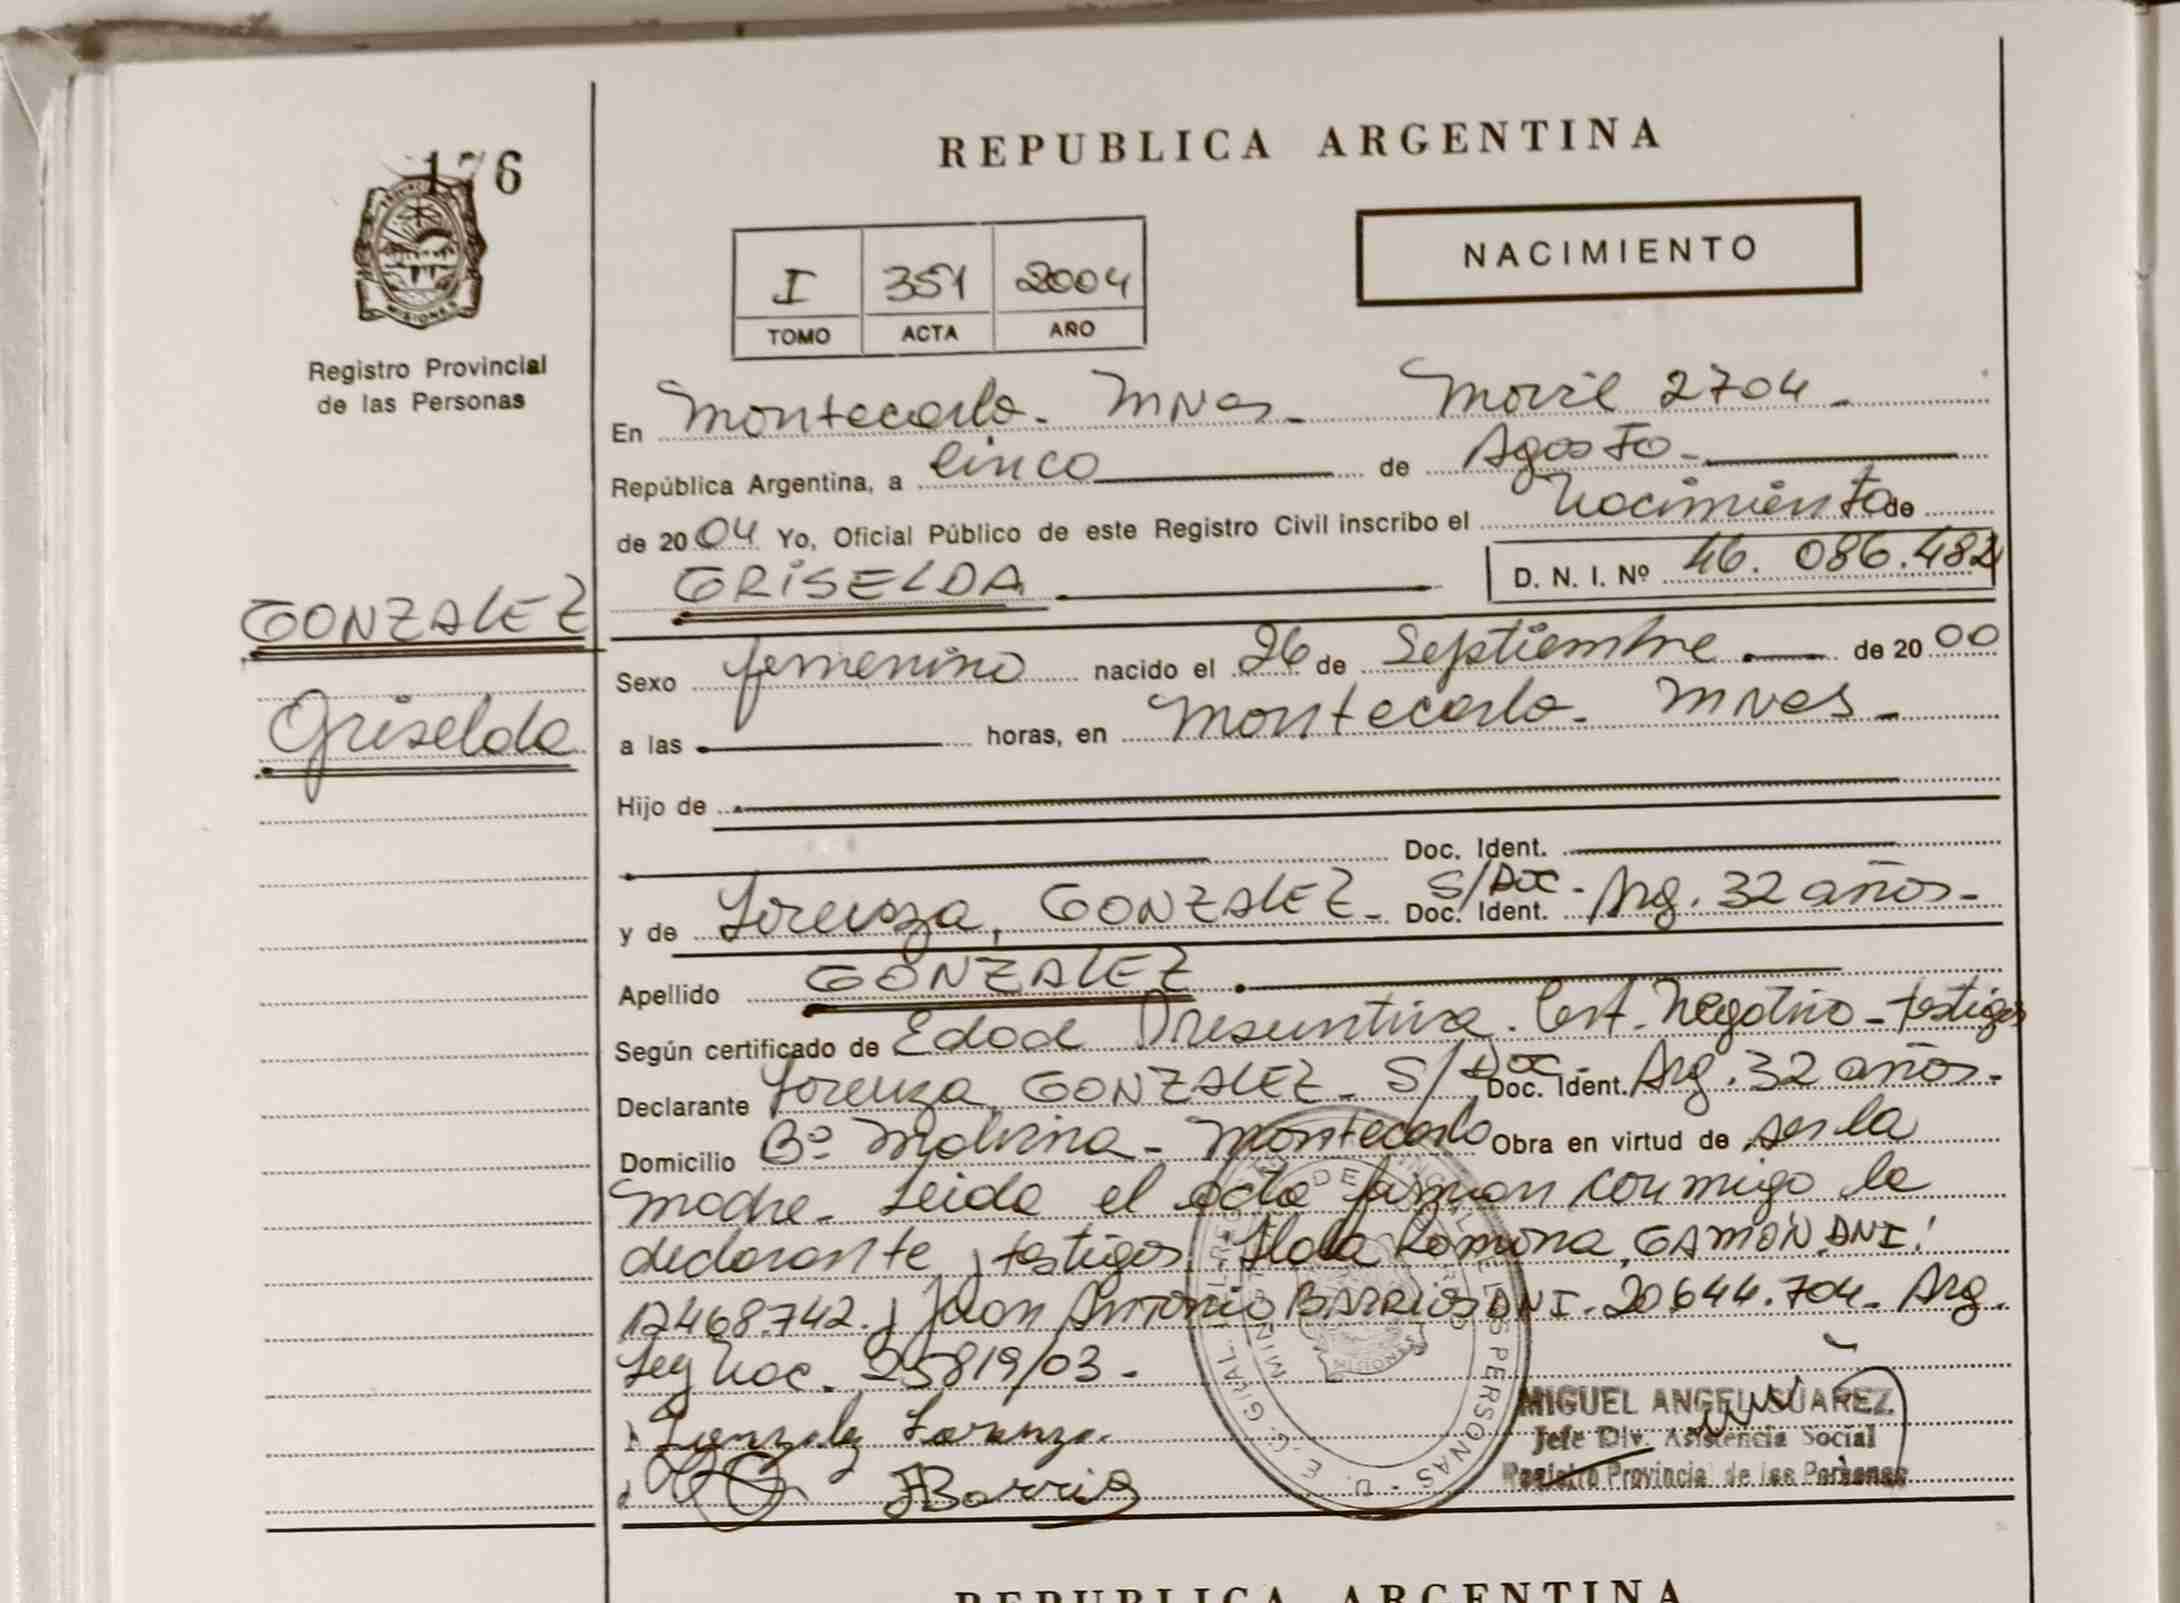 176
MISIONES
Registro Provincial
de las Personas
REPUBLICA ARGENTINA
NACIMIENTO
I 351 2004
TOMO ACTA AÑO
En Montecarlo - Mnes - Movil 2704 -
República Argentina, a Cinco de Agosto -
de 2004 Yo, Oficial Público de este Registro Civil inscribo el Nacimiento de
GRISELDA D. N. I. Nº 46.086.482
GONZALEZ
Griselda
Sexo femenino nacido el 26 de Septiembre de 2000
a las horas, en Montecarlo - Mnes -
Hijo de
Doc. Ident.
y de Lorenza, GONZALEZ - S/Doc - Doc. Ident. Arg. 32 años -
Apellido GONZALEZ
Según certificado de Edad Presuntiva. Cert. Negativo - testigos
Declarante Lorenza, GONZALEZ - S/Doc Doc. Ident. Arg. 32 años -
Domicilio Bº Malvina - Montecarlo Obra en virtud de ser la
madre - Leida el acta firman conmigo la
declarante y testigos Ilda Romona, GAMON. DNI:
12468.742. y Juan Antonio BARRIOS DNI. 20644.704 - Arg.
Leg Nac. 25819/03 -
Gonzalez Lorenza.
JABarrios
MIGUEL ANGEL SUAREZ
Jefe Div. Asistencia Social
Registro Provincial de las Personas
REPUBLICA ARGENTINA